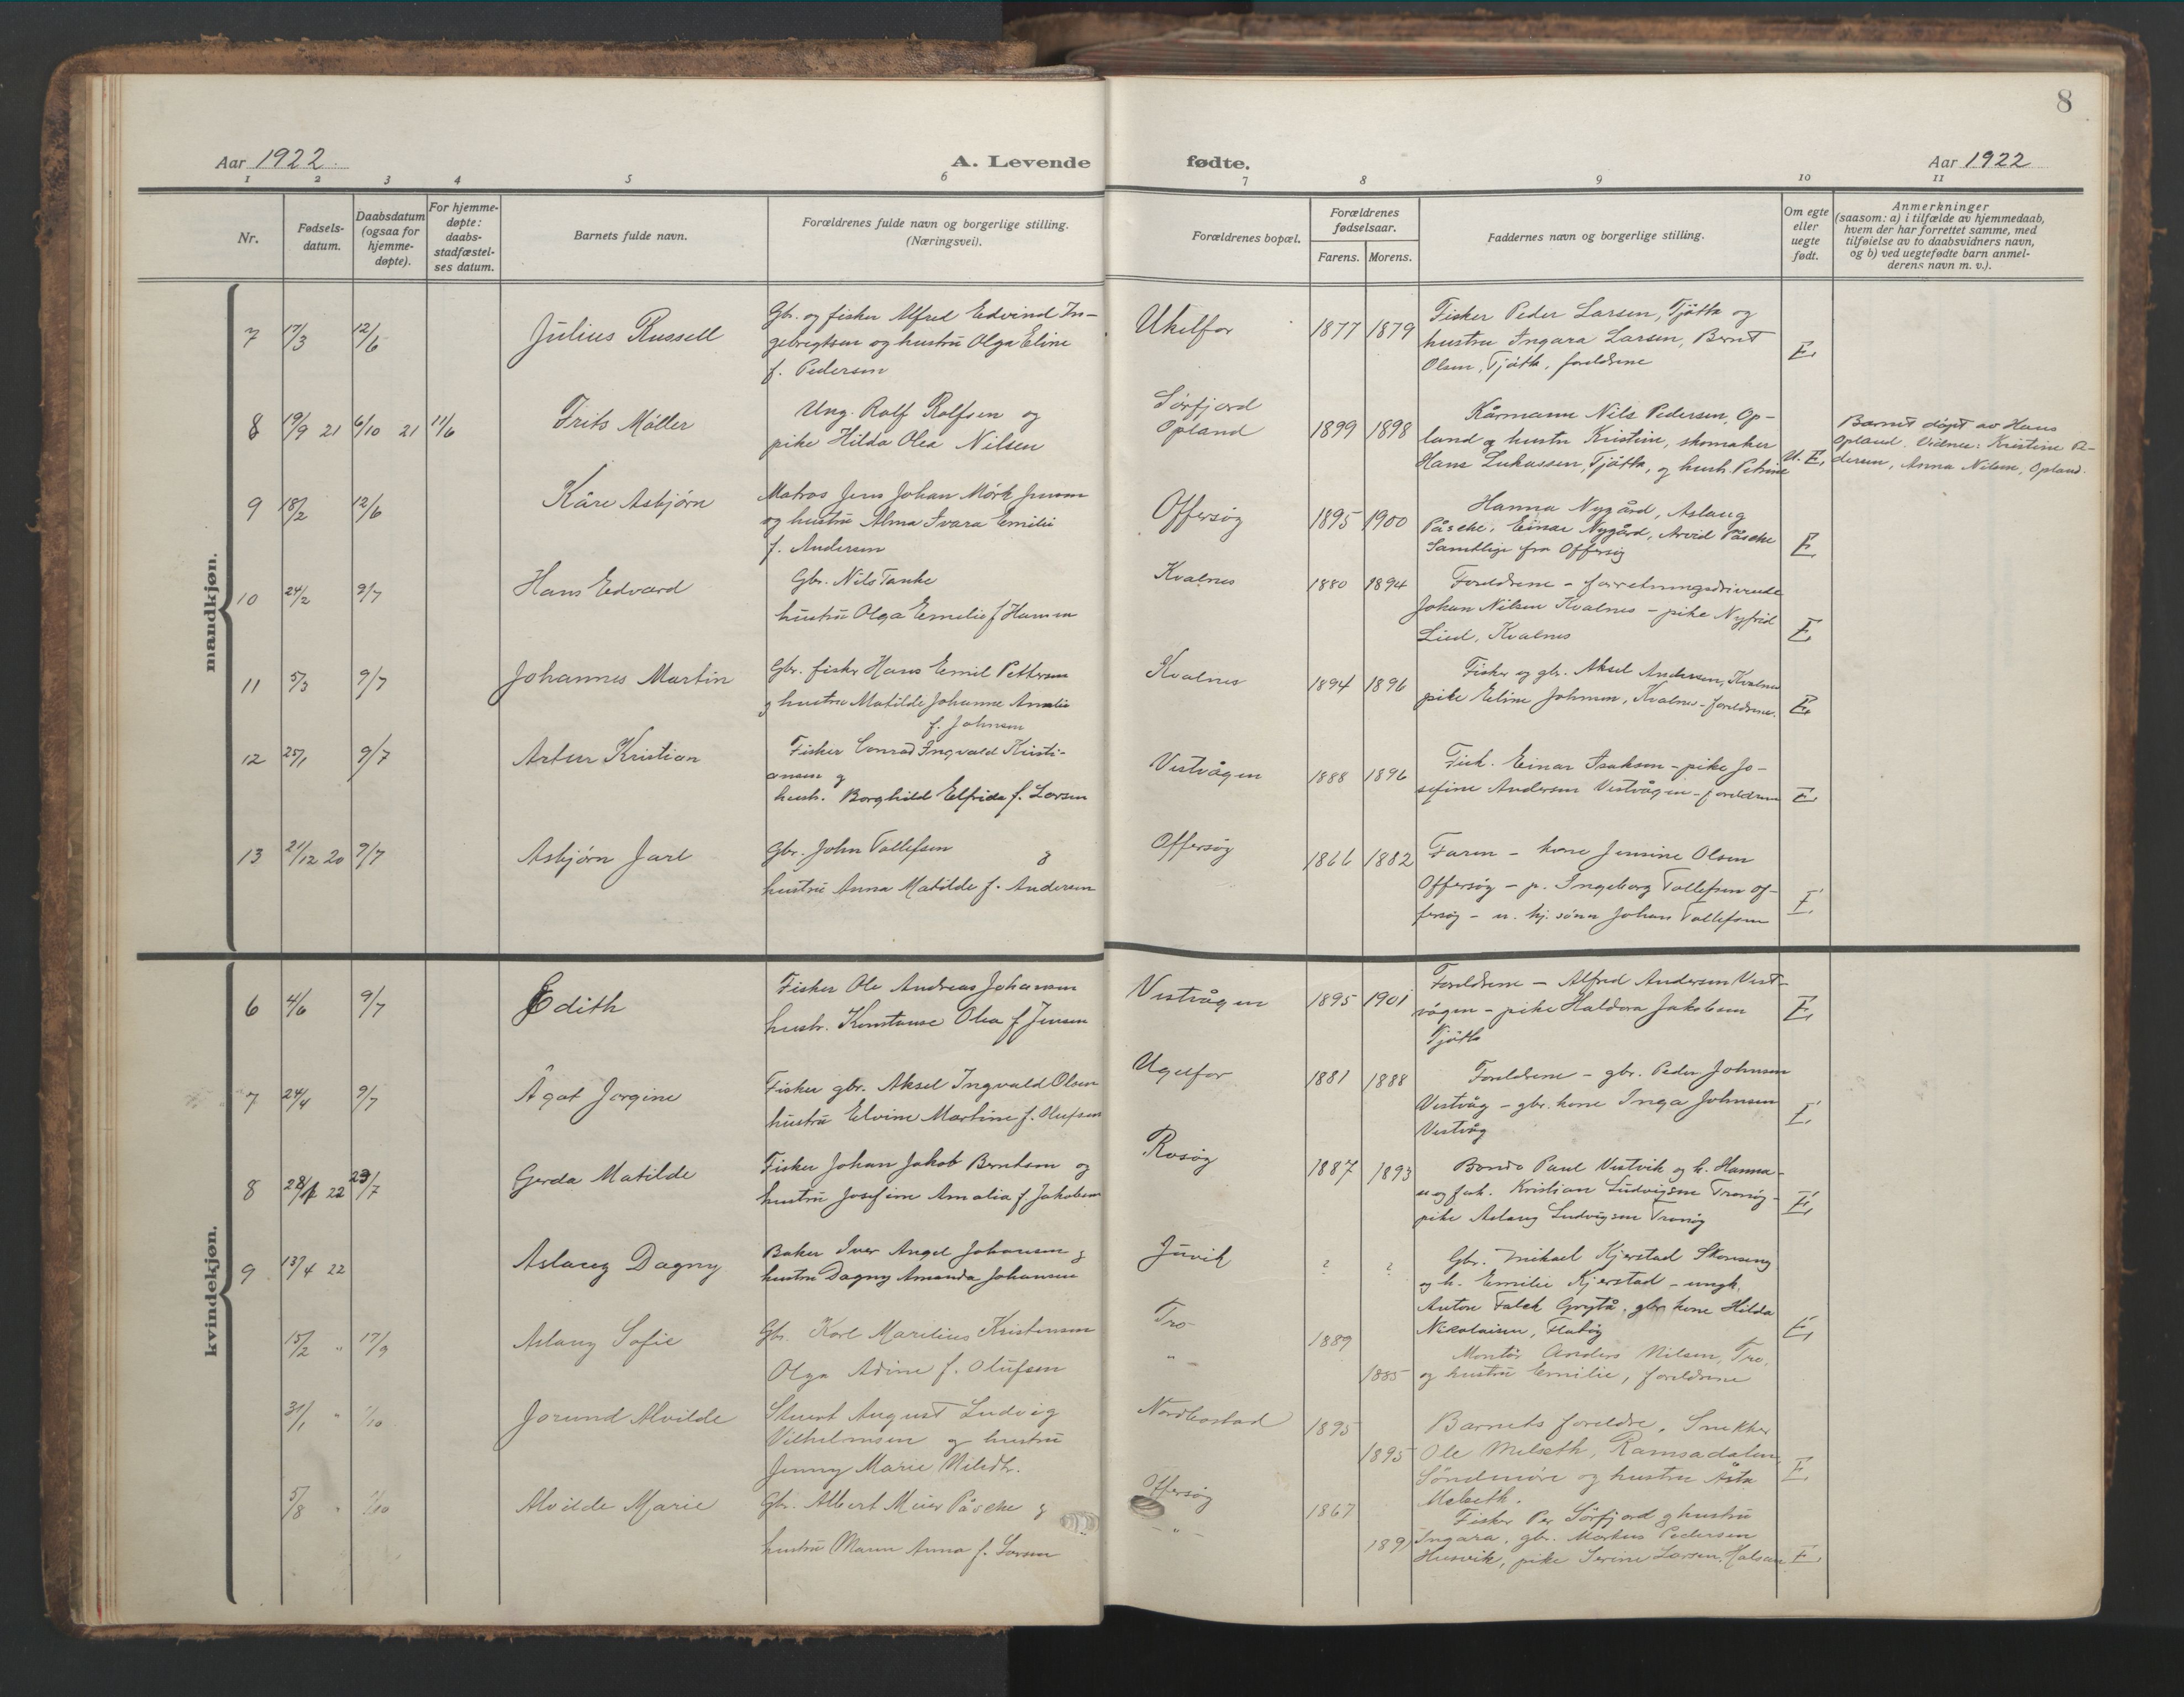 8
Aar 1922
A. Levende fødte.
Aar 1922
1 2 3 4 5 6 7 8 9 10 11
Nr.
Fødsels-
datum.
Daabsdatum
(ogsaa for
hjemme-
døpte).
For hjemme-
døpte:
daabs-
stadfæstel-
ses datum.
Barnets fulde navn.
Forældrenes fulde navn og borgerlige stilling.
(Næringsvei).
Forældrenes bopæl.
Forældrenes
fødselsaar.
Farens. Morens.
Faddernes navn og borgerlige stilling.
Om egte
eller
uegte
født.
Anmerkninger
(saasom: a) i tilfælde av hjemmedaab,
hvem der har forrettet samme, med
tilføielse av to daabsvidners navn,
og b) ved uegtefødte barn anmel-
derens navn m. v.).
mandkjøn.
7 17/3 12/6 Julius Russell
Gbr. og fisker Alfred Edvind In-
gebrigtsen og hustru Olga Eline
f. Pedersen
Ukelfor 1877 1879
Fisker Peder Larsen, Tjøtta og
hustru Ingara Larsen, Bernt
Olsen, Tjøtta, foreldrene
E.
8 19/9 21 6/10 21 11/6 Frits Møller
Ung. Rolf Rolfsen og
pike Hilda Olea Nilsen
Sørfjord
Opland 1899 1898
Kårmann Nils Pedersen, Op-
land og hustru Kristine, skomaker
Hans Lukassen, Tjøtta, og hustr. Petrine
U. E.
Barnet døpt av Hans
Opland. Vidner: Kristine Pe-
dersen, Anna Nilsen, Opland.
9 18/2 12/6 Kåre Asbjørn
Matros Jens Johan Mørk Jensen
og hustru Alma Ivara Emilie
f. Andersen
Offersøy 1895 1900
Hanna Nygård, Aslaug
Påsche, Einar Nygård, Arvid Påsche
Samtlige fra Offersøy
E.
10 24/2 9/7 Hans Edvard
Gbr. Nils Tanke
hustru Olga Emelie f Hamm
Kvalnes 1880 1894
Foreldrene - forretningsdrivende
Johan Nilsen Kvalnes - pike Nyfrid
Lied, Kvalnes
E.
11 5/3 9/7 Johannes Martin
Gbr. fisker Hans Emil Pettersen
og hustru Matilde Johanne Amalie
f. Johnsen
Kvalnes 1894 1896
Fisker og gbr. Aksel Andersen, Kvalnes
pike Eline Johnsen, Kvalnes - foreldrene.
E.
12 25/1 9/7 Artur Kristian
Fisker Conrad Ingvald Kristi-
ansen og
hustr. Borghild Elfrida f. Larsen
Vestvågen 1888 1896
Fisk. Einar Isaksen - pike Jo-
sefine Andersen Vestvågen - foreldrene
E.
13 21/12 20 9/7 Asbjørn Jarl
Gbr. John Tollefsen og
hustru Anna Matilde f. Andersen
Offersøy 1866 1882
Faren - kone Jensine Olsen
Offersøy - p. Ingeborg Tollefsen Of-
fersøy - u. hj. sønn Johan Tollefsen
E.
kvindekjøn.
6 4/6 9/7 Edith
Fisker Ole Andreas Johansen
hustr. Konstanse Olea f Jensen
Vestvågen 1895 1901
Foreldrene - Alfred Andersen Vest-
vågen - pike Haldora Jakobsen
Tjøtta
E.
7 24/4 9/7 Ågot Jorgine
Fisker gbr. Aksel Ingvald Olsen
hustru Elvine Martine f. Olufsen
Ugelfor 1881 1888
Foreldrene - gbr. Peder Johnsen
Vestvåg - gbr. kone Inga Johnsen
Vestvåg
E.
8 28/1 22 23/7 Gerda Matilde
Fisker Johan Jakob Berntsen og
hustru Josefine Amalia f Jakobsen
Rosøy 1887 1893
Bonde Paul Vestvik og h. Hanna -
u og fisk. Kristian Ludvigsen Tronøy -
pike Aslaug Ludvigsen Tronøy
E.
9 13/4 22 Aslaug Dagny
Baker Iver Angel Johansen og
hustru Dagny Amanda Johansen
Juvik ? ?
Gbr. Mikael Kjerstad Skonseng
og h. Emilie Kjerstad - ungk.
Anton Falch Grytå, gbr. kone Hilda
Nikolaisen, Flatøy
E.
15/2 " 17/9 Aslaug Sofie
Gbr. Karl Marelius Kristensen
Olga Adine f. Olufsen
Tro
- " - 1889 1885
Montør Anders Nilsen, Tro,
og hustru Emilie, foreldrene
31/1 " 1/10 Jorund Alvilde
Stuert August Ludvig
Vilhelmsen og hustru
Jenny Marie Nilsdtr.
Nordbostad 1895 1895
Barnets foreldre, Snekker
Ole Melseth, Ramsadalen,
Søndmøre og hustru Åsta
Melseth.
E.
5/8 " 1/10 Alvilde Marie
Gbr. Albert Meier Påsche og
hustru Maren Anna f. Larsen
Offersøy
- " - 1867 189
Fisker Per Sørfjord og hustru
Ingara, gbr. Markus Pedersen
Husvik, pike Serine Larsen, Halsan
E.